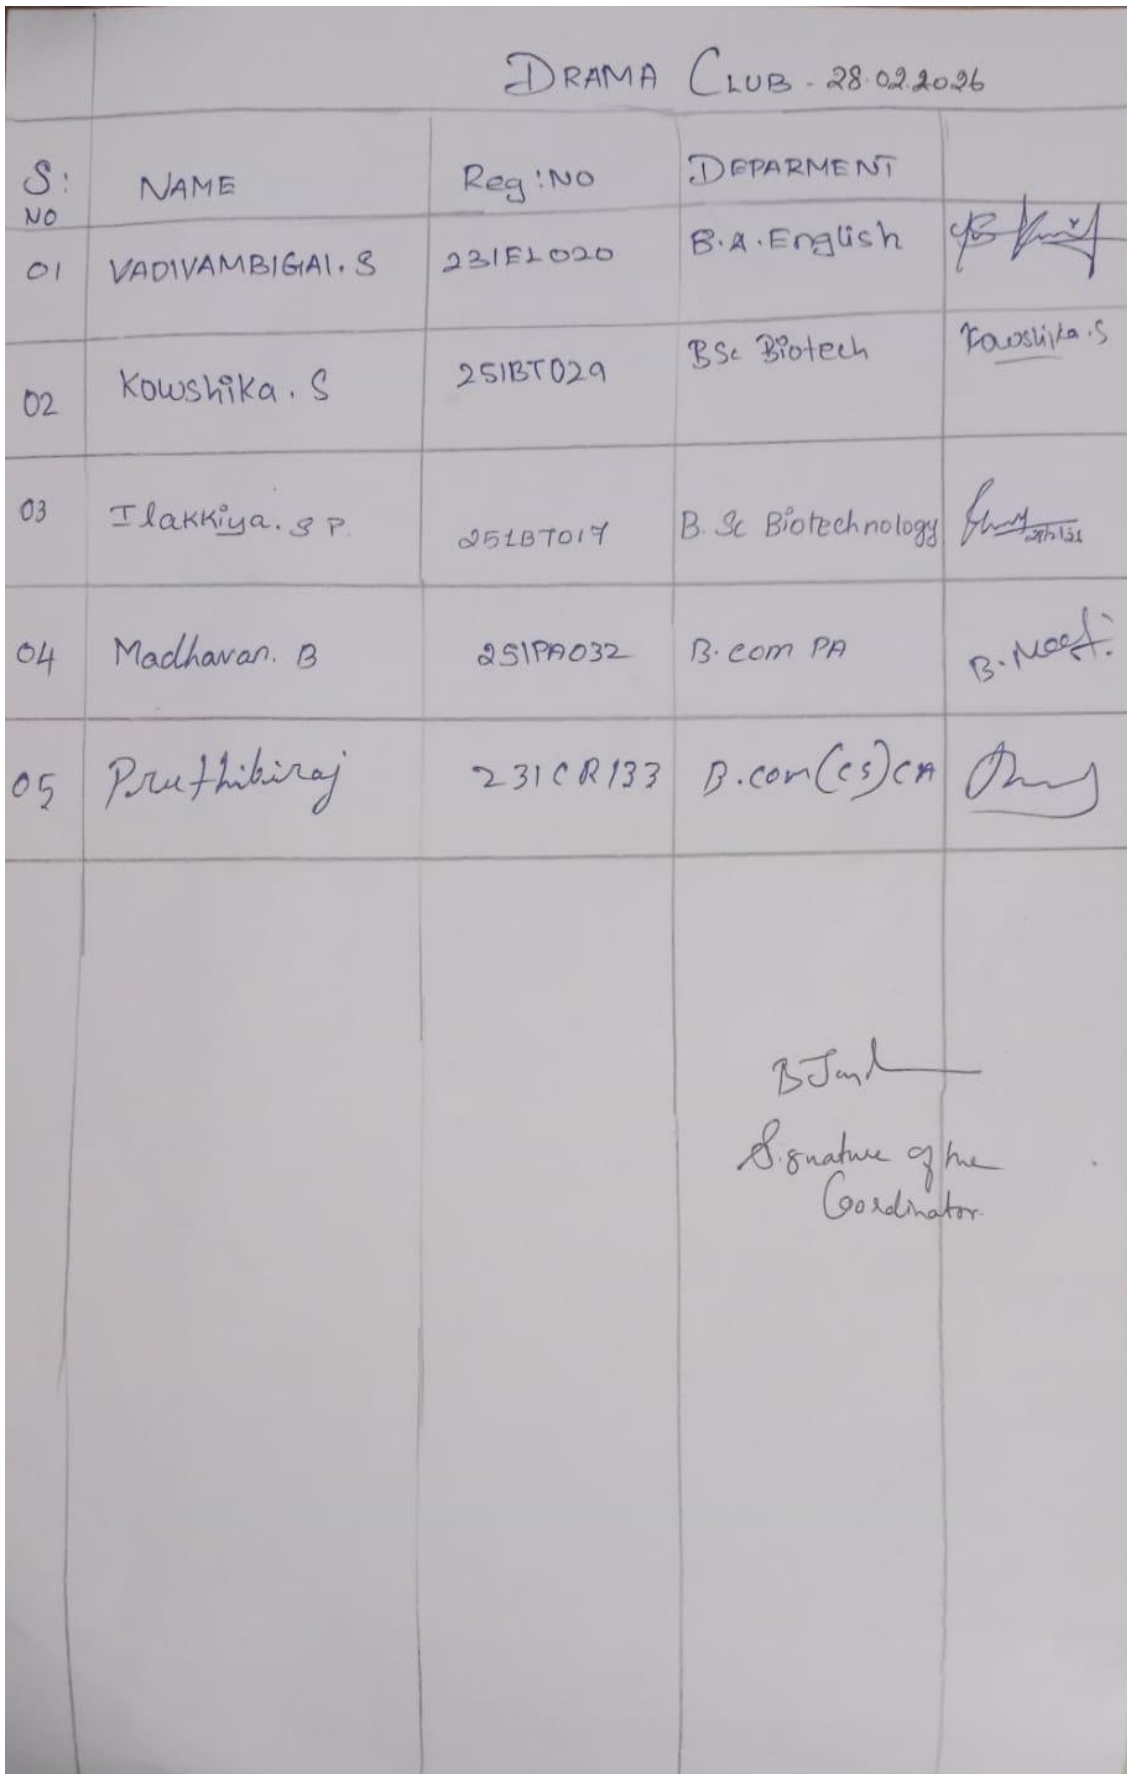 DRAMA CLUB - 28.02.2026
S: NO NAME Reg:NO DEPARMENT
01 VADIVAMBIGAI. S 231EL020 B.A.English
02 Kowshika. S 251BT029 BSc Biotech Kowshika.S
03 Ilakkiya. S P. 251BT017 B.Sc Biotechnology
04 Madhavan. B 251PA032 B.com PA
05 Pruthibiraj 231CR133 B.com(cs)CA
Signature of the
Coordinator.